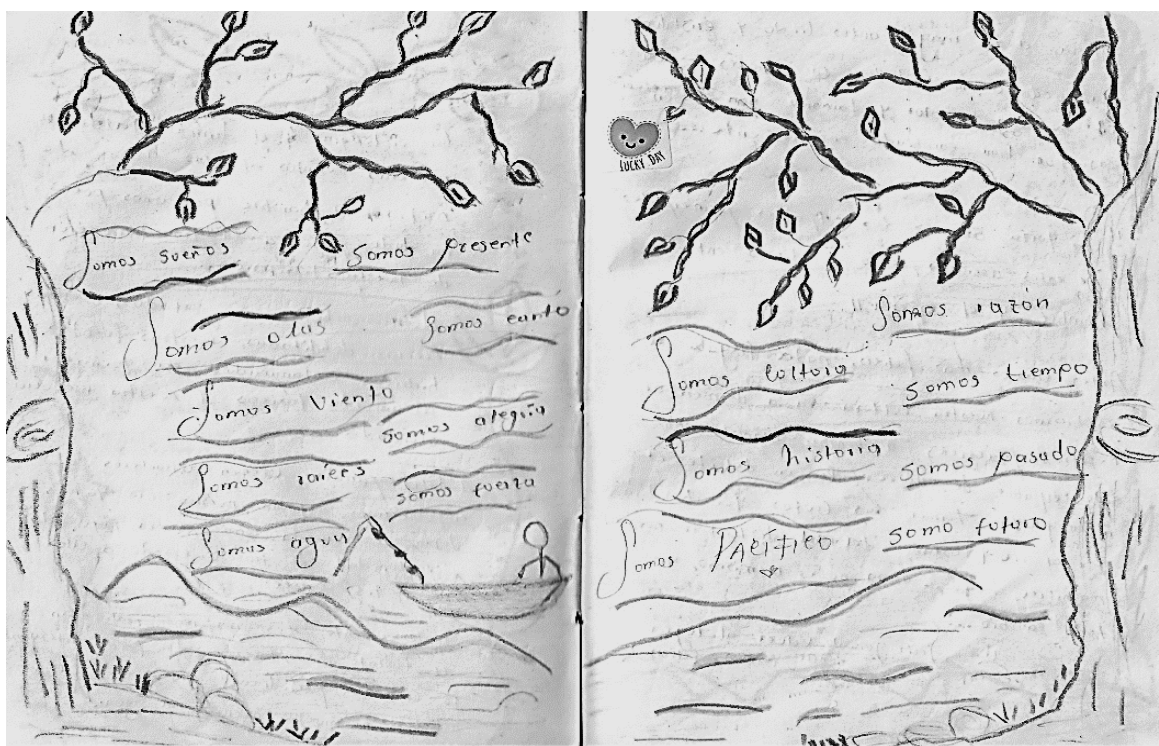 Somos sueños
Somos presente
Somos olas
Somos canto
Somos viento
somos alegría
Somos raices
somos fuerza
Somos agua
LUCKY DAY
Somos razón
Somos coltura
somos tiempo
Somos historia
somos pasado
Somos PACÍFICO
somo futuro